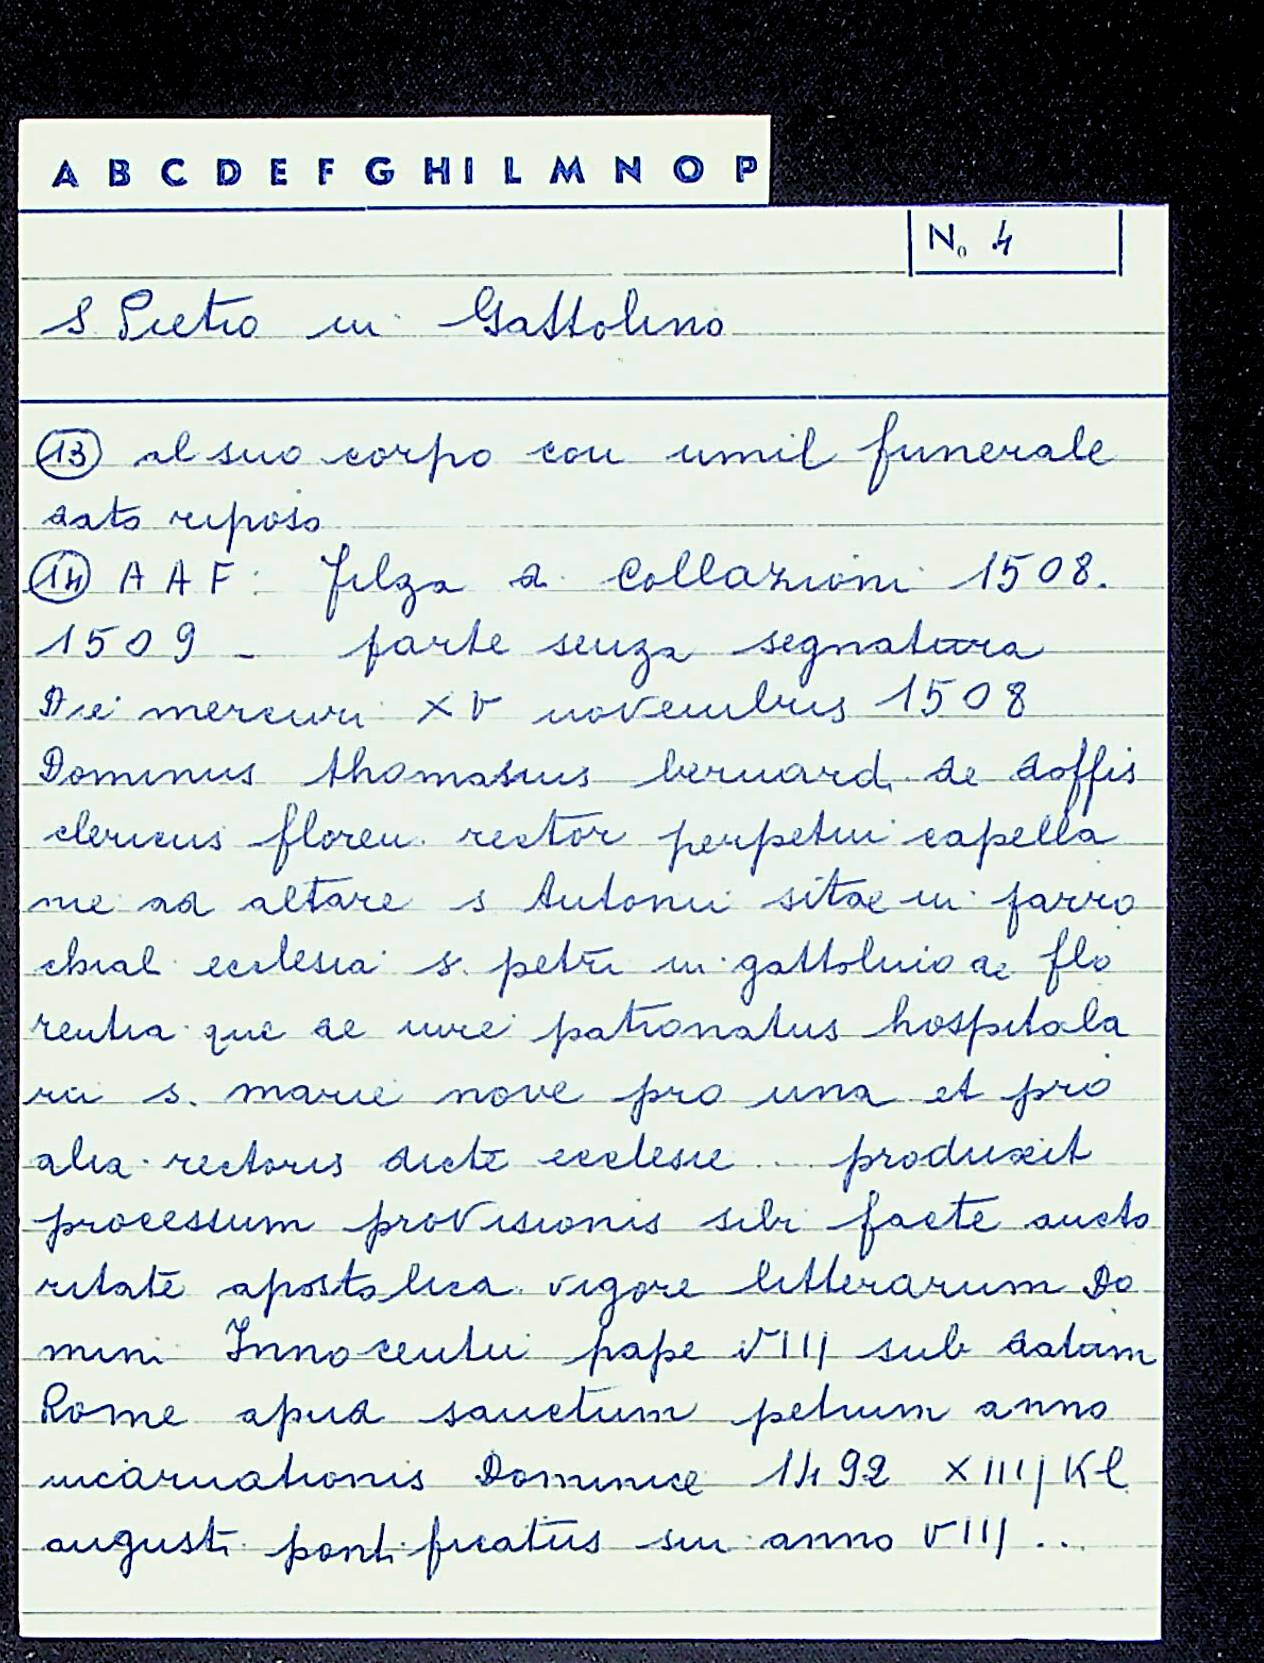 A B C D E F G H I L M N O P
No 4
S. Pietro in Gattolino
13 al suo corpo con umil funerale
dato riposo
14 A A F: filza d. Collazioni 1508.
1509 - parte senza segnatura
Die mercuri XV novembris 1508
Dominus thomasius bernard. de doffis
clericus floren. rector perpetui capella
nie ad altare s Antonii sitae in parro
chial ecclesia s. petri in gattolino de flo
rentia que de iure patronatus hospitala
rii s. marie nove pro una et pro
alia rectoris dicte ecclesie ... produxit
processum provisionis sibi facte aucto
ritate apostolica vigore litterarum Do
mini Innocentii pape VIII sub datum
Rome apud sanctum petrum anno
incarnationis Dominice 1492 XIIII Kl
augusti pontificatus sui anno VIII ...